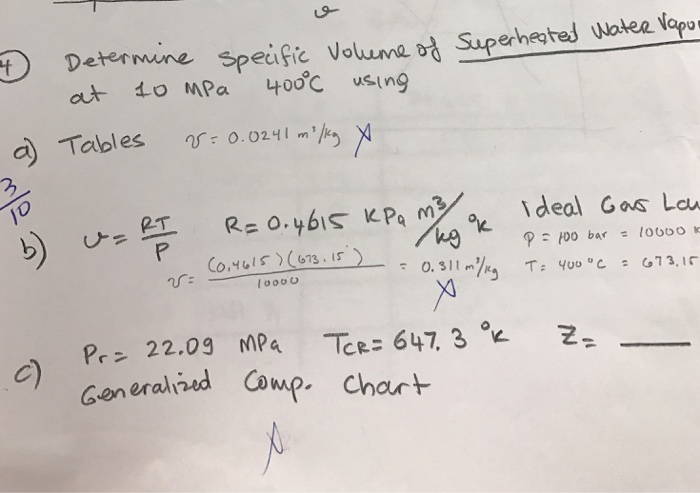 v
4 Determine specific Volume of Superheated Water Vapo
at 10 MPa 400°C using
a) Tables v = 0.0241 m³/kg X
3/10
b) v = RT/P R = 0.4615 KPa m³/kg °K ideal Gas Law
v = (0.4615)(673.15)/10000 = 0.311 m³/kg P = 100 bar = 10000 K
X T = 400°C = 673.15
c) Pr = 22.09 MPa TCR = 647.3 °K Z = ___
Generalized Comp. Chart
X